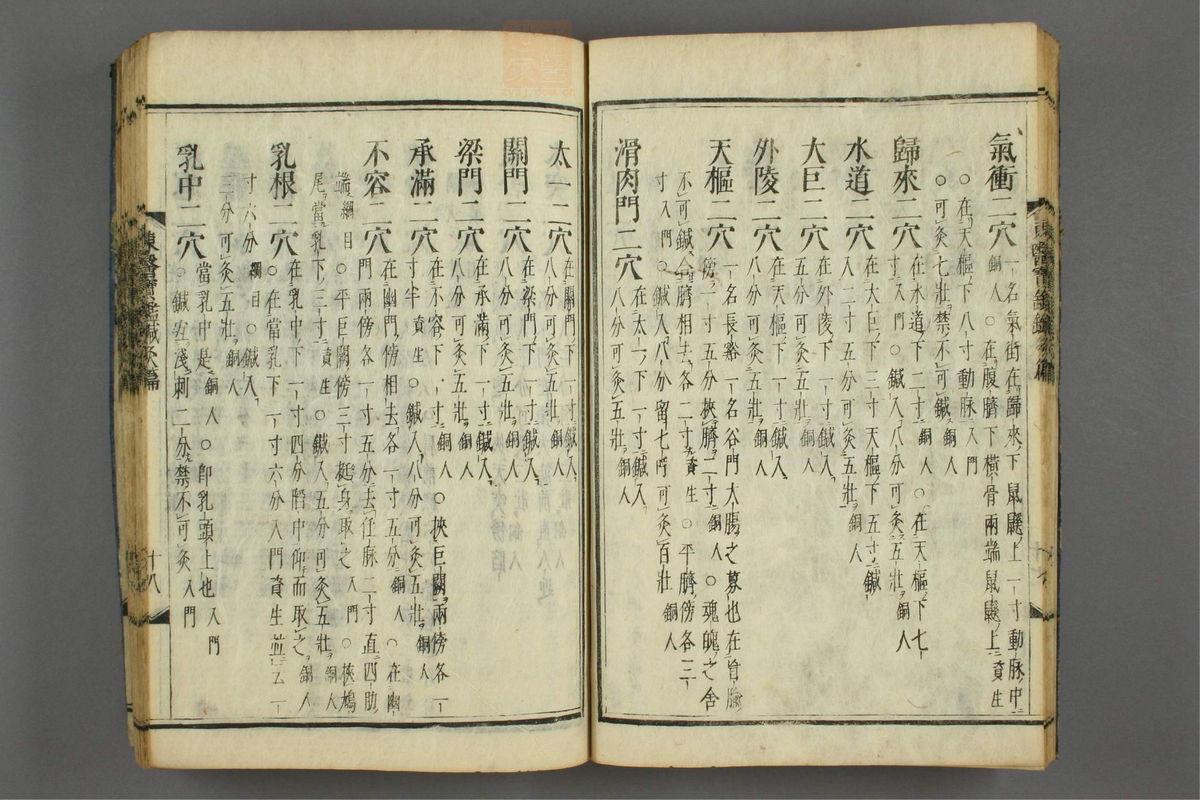 氣衝二穴一名氣街在歸來下鼠鼷上一寸動脉中
銅人○在腹臍下橫骨兩端鼠鼷上資生
○在天樞下八寸動脉入門
○可灸七壯禁不可鍼銅人
歸來二穴在水道下二寸銅人○在天樞下七
寸入門○鍼入八分可灸五壯銅人
水道二穴在大巨下三寸天樞下五寸鍼
入二寸半可灸五壯銅人
大巨二穴在外陵下一寸鍼入
五分可灸五壯銅人
外陵二穴在天樞下一寸鍼入
八分可灸五壯銅人
天樞二穴一名長谿一名谷門大腸之募也在肓腧
傍一寸五分挾臍二寸銅人○魂魄之舍
不可鍼合臍相去各二寸資生○平臍傍各三
寸入門○鍼入八分留七呼可灸百壯銅人
滑肉門二穴在太一下一寸鍼入
八分可灸五壯銅人
太一二穴在關門下一寸鍼入
八分可灸五壯銅人
關門二穴在梁門下一寸鍼入
八分可灸五壯銅人
梁門二穴在承滿下一寸鍼入
八分可灸五壯銅人
承滿二穴在不容下一寸銅人○挾巨闕兩傍各一
寸半資生○鍼入八分可灸五壯銅人
不容二穴在幽門傍相去各一寸五分銅人○在幽
門兩傍各一寸五分去任脉二寸直四肋
端綱目○平巨闕傍三寸挺身取之入門○挾鳩
尾當乳下三寸資生○鍼入五分可灸五壯銅人
乳根二穴在乳中下一寸四分陷中仰而取之銅人
○在當乳下一寸六分入門資生並五一
寸六分綱目○鍼入
三分可灸五壯銅人
乳中二穴當乳中是銅人○卽乳頭上也入門
○鍼宜淺刺二分禁不可灸入門
東醫寶鑑鍼灸篇
十八